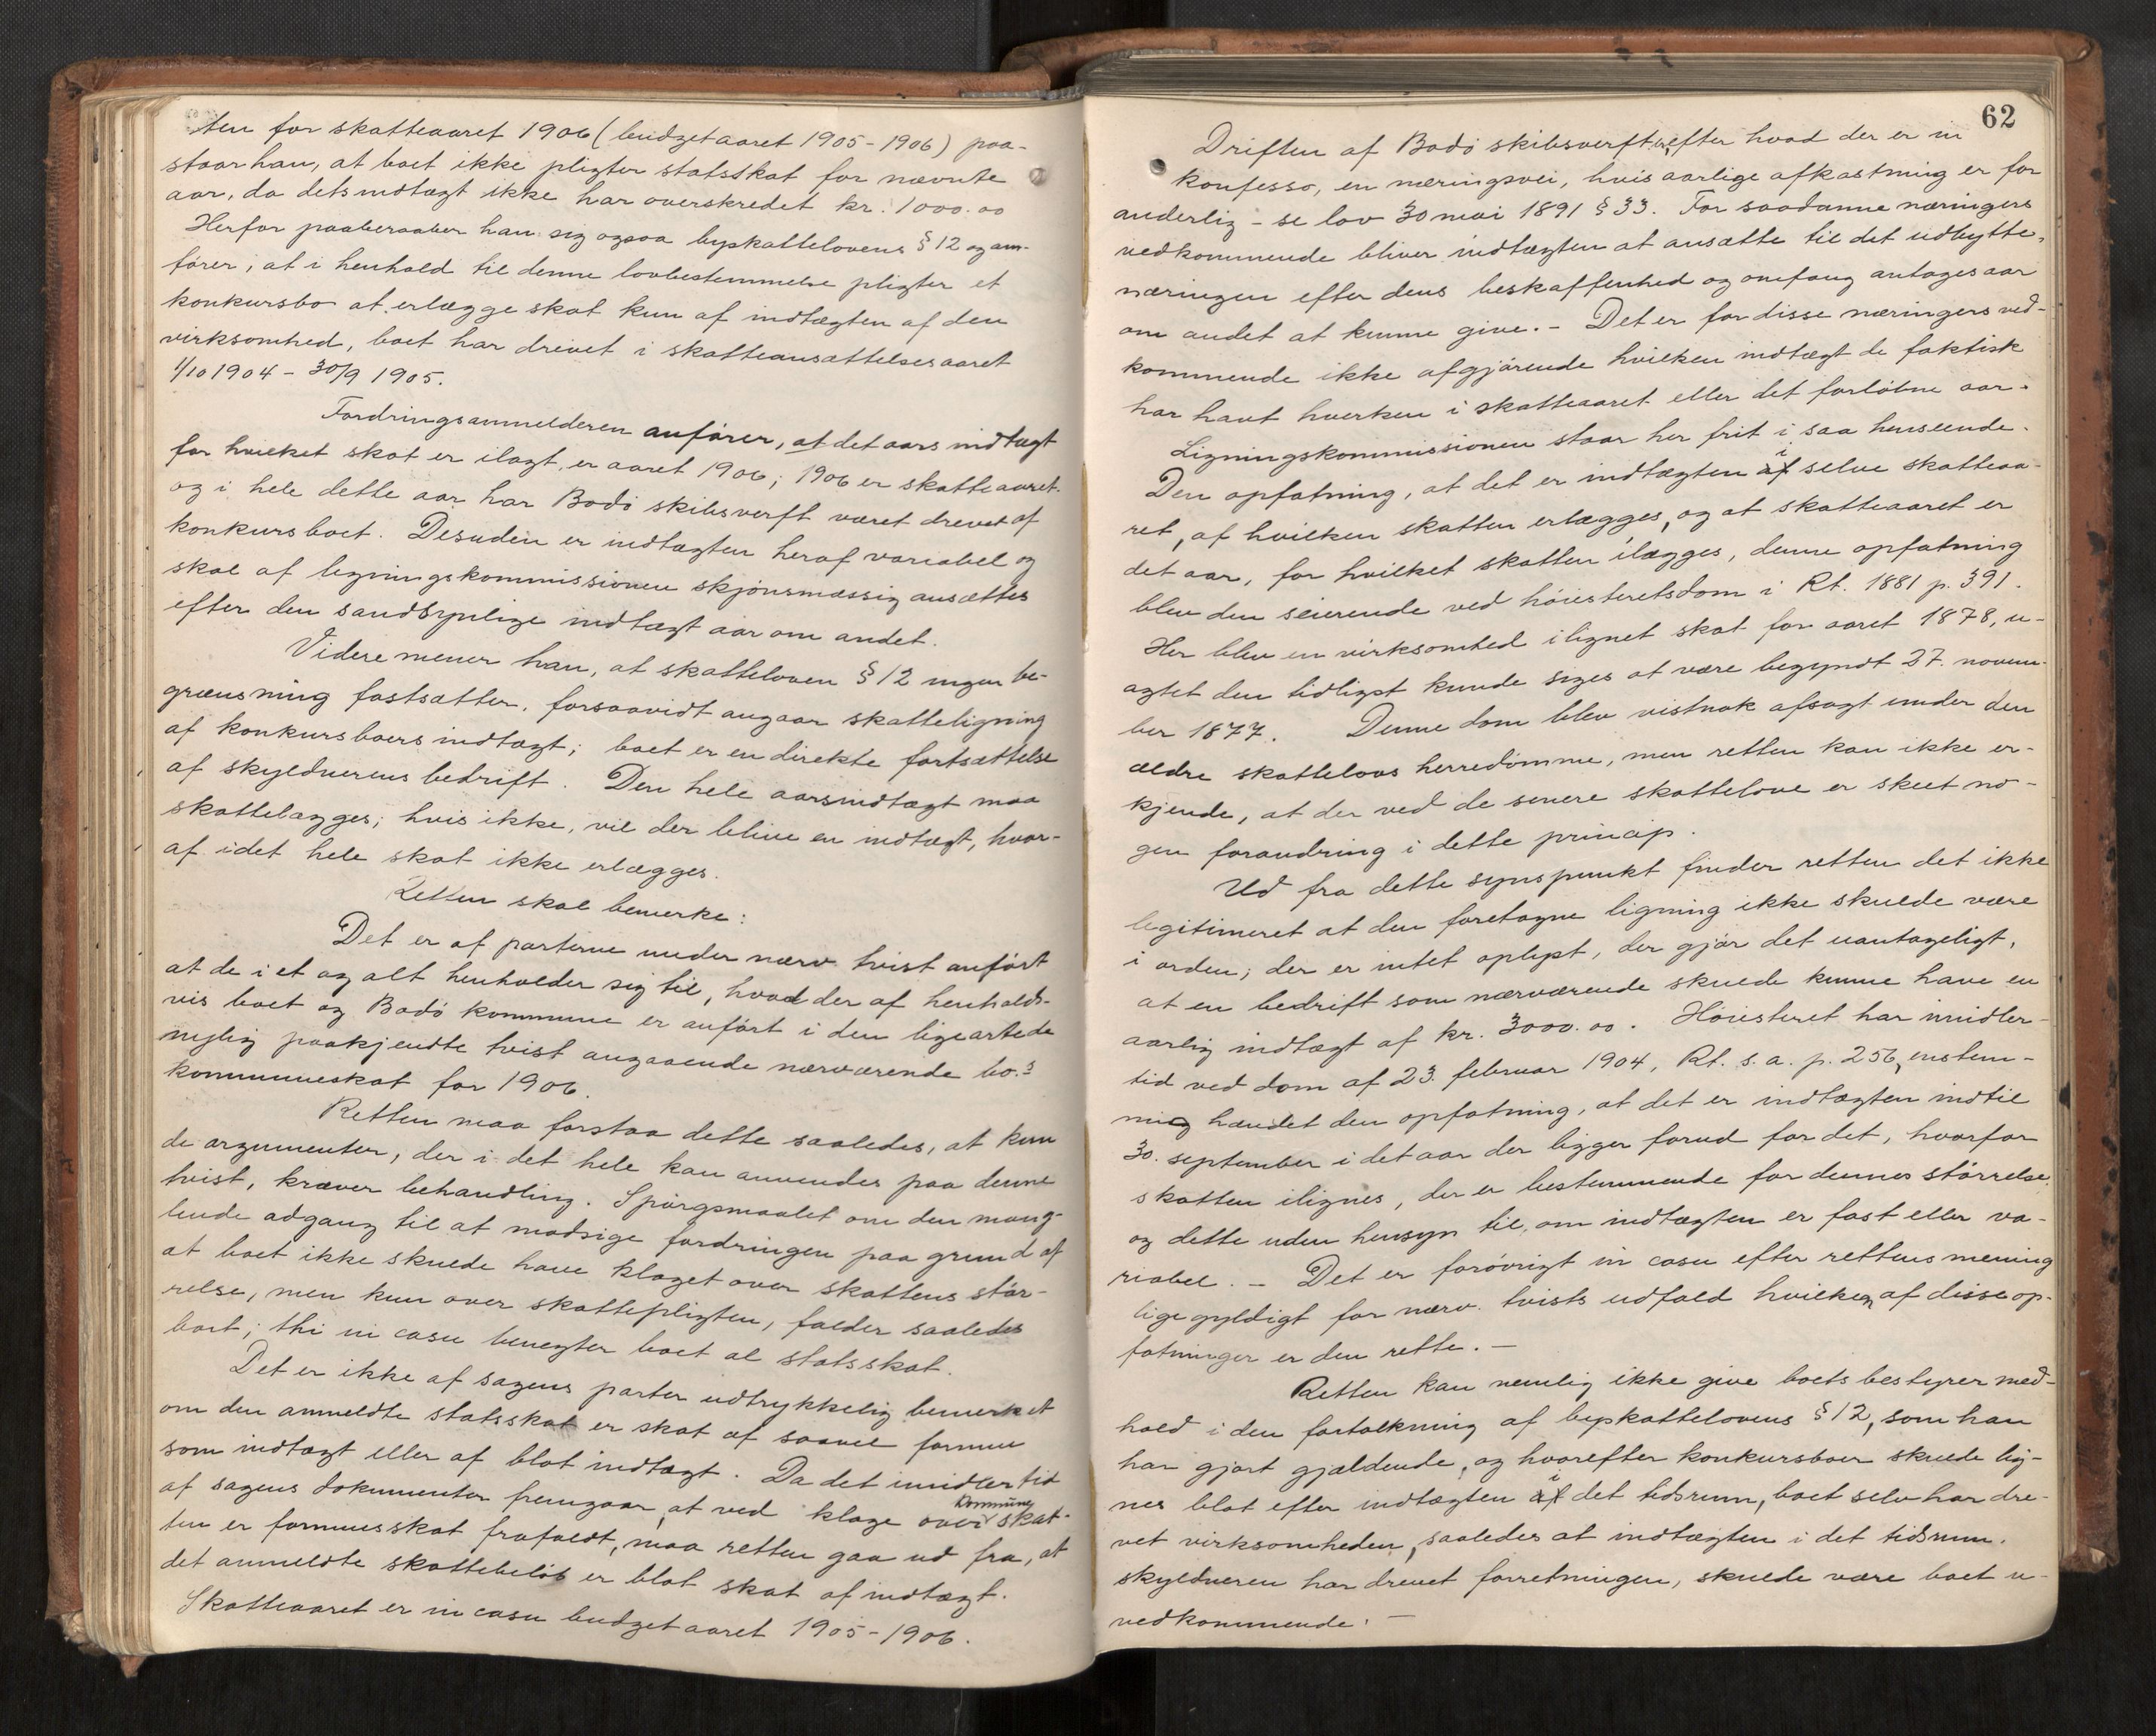 ten for skatteaaret 1906 (budgetaaret 1905-1906) paa-
staar han, at boet ikke pligter statsskat for nævnte
aar, da dets indtægt ikke har overskredet kr. 1000.00
Herfor paaberaaber han sig ogsaa byskattelovens § 12 og an-
fører, at i henhold til denne lovbestemmelse pligter et
konkursbo at erlægge skat kun af indtægten af den
virksomhed, boet har drevet i skatteansættelsesaaret
1/10 1904 - 30/9 1905.
Fordringsanmelderen anfører, at det aars indtægt
for hvilket skat er ilagt, er aaret 1906; 1906 er skatteaaret
og i hele dette aar har Bodø skibsverft været drevet af
konkursboet. Desuden er indtægten heraf variabel og
skal af ligningskommissionen skjønsmæssig ansættes
efter den sandsynlige indtægt aar om andet.
Videre mener han, at skatteloven § 12 ingen be-
grænsning fastsætter, forsaavidt angaar skatteligning
af konkursboers indtægt; boet er en direkte fortsættelse
af skyldnerens bedrift. Den hele aarsindtægt maa
skattelægges; hvis ikke, vil der blive en indtægt, hvor-
af idet hele skat ikke erlægges.
Retten skal bemerke:
Det er af parterne under nærv. tvist anført
at de i et og alt henholder sig til, hvad der af henholds-
vis boet og Bodø kommune er anført i den ligeartede
nylig paakjendte tvist angaaende nærværende bo.s
kommuneskat for 1906.
Retten maa forstaa dette saaledes, at kun
de argumenter, der i det hele kan anvendes paa denne
tvist, kræver behandling. Spørgsmaalet om den mang-
lende adgang til at modsige fordringen paa grund af
at boet ikke skulde have klaget over skattens stør-
relse, men kun over skattepligten, falder saaledes
bort; thi in casu benegter boet al statsskat.
Det er ikke af sagens parter udtrykkelig bemerket
om den anmeldte statsskat er skat af saavel formue
som indtægt eller af blot indtægt. Da det imidlertid
af sagens dokumenter fremgaar, at ved klage over kommuneskat-
ten er formuesskat frafaldt, maa retten gaa ud fra, at
det anmeldte skattebeløb er blot skat af indtægt.
Skatteaaret er in casu budgetaaret 1905-1906.
62
Driften af Bodø skibsverft er, efter hvad der er in
konfesso, en næringsvei, hvis aarlige afkastning er for
anderlig - se lov 30 mai 1891 § 33. For saadanne næringers
vedkommende bliver indtægten at ansætte til det udbytte,
næringen efter dens beskaffenhed og omfang antages aar
om andet at kunne give. - Det er for disse næringers ved-
kommende ikke afgjørende hvilken indtægt de faktisk
har havt hverken i skatteaaret eller det forløbne aar.
Ligningskommissionen staar her frit i saa henseende.
Den opfatning, at det er indtægten i selve skatteaa-
ret, af hvilken skatten erlægges, og at skatteaaret er
det aar, for hvilket skatten ilægges, denne opfatning
blev den seierende ved høiesteretsdom i Rt. 1881 p. 391.
Her blev en virksomhed ilignet skat for aaret 1878, u-
agtet den tidligst kunde siges at være begyndt 27. novem-
ber 1877. Denne dom blev vistnok afsagt under den
ældre skattelovs herredømme, men retten kan ikke er-
kjende, at der ved de senere skattelove er skeet no-
gen forandring i dette princip.
Ud fra dette synspunkt finder retten det ikke
legitimeret at den foretagne ligning ikke skulde være
i orden; der er intet oplyst, der gjør det uantageligt,
at en bedrift som nærværende skulde kunne have en
aarlig indtægt af kr. 3000.00. Høiesteret har imidler-
tid ved dom af 23. februar 1904, Rt. s. a. p. 256, enstem-
mig hævdet den opfatning, at det er indtægten indtil
30. september i det aar der ligger forud for det, hvorfor
skatten ilignes, der er bestemmende for dennes størrelse,
og dette uden hensyn til, om indtægten er fast eller va-
riabel. - Det er forøvrigt in casu efter rettens mening
ligegyldigt for nærv. tvists udfald hvilken af disse op-
fatninger er den rette. -
Retten kan nemlig ikke give boets bestyrer med-
hold i den fortolkning af byskattelovens § 12, som han
har gjort gjældende, og hvorefter konkursboer skulde lig-
nes blot efter indtægten i det tidsrum, boet selv har dre-
vet virksomheden, saaledes at indtægten i det tidsrum,
skyldneren har drevet forretningen, skulde være boet u-
vedkommende. -